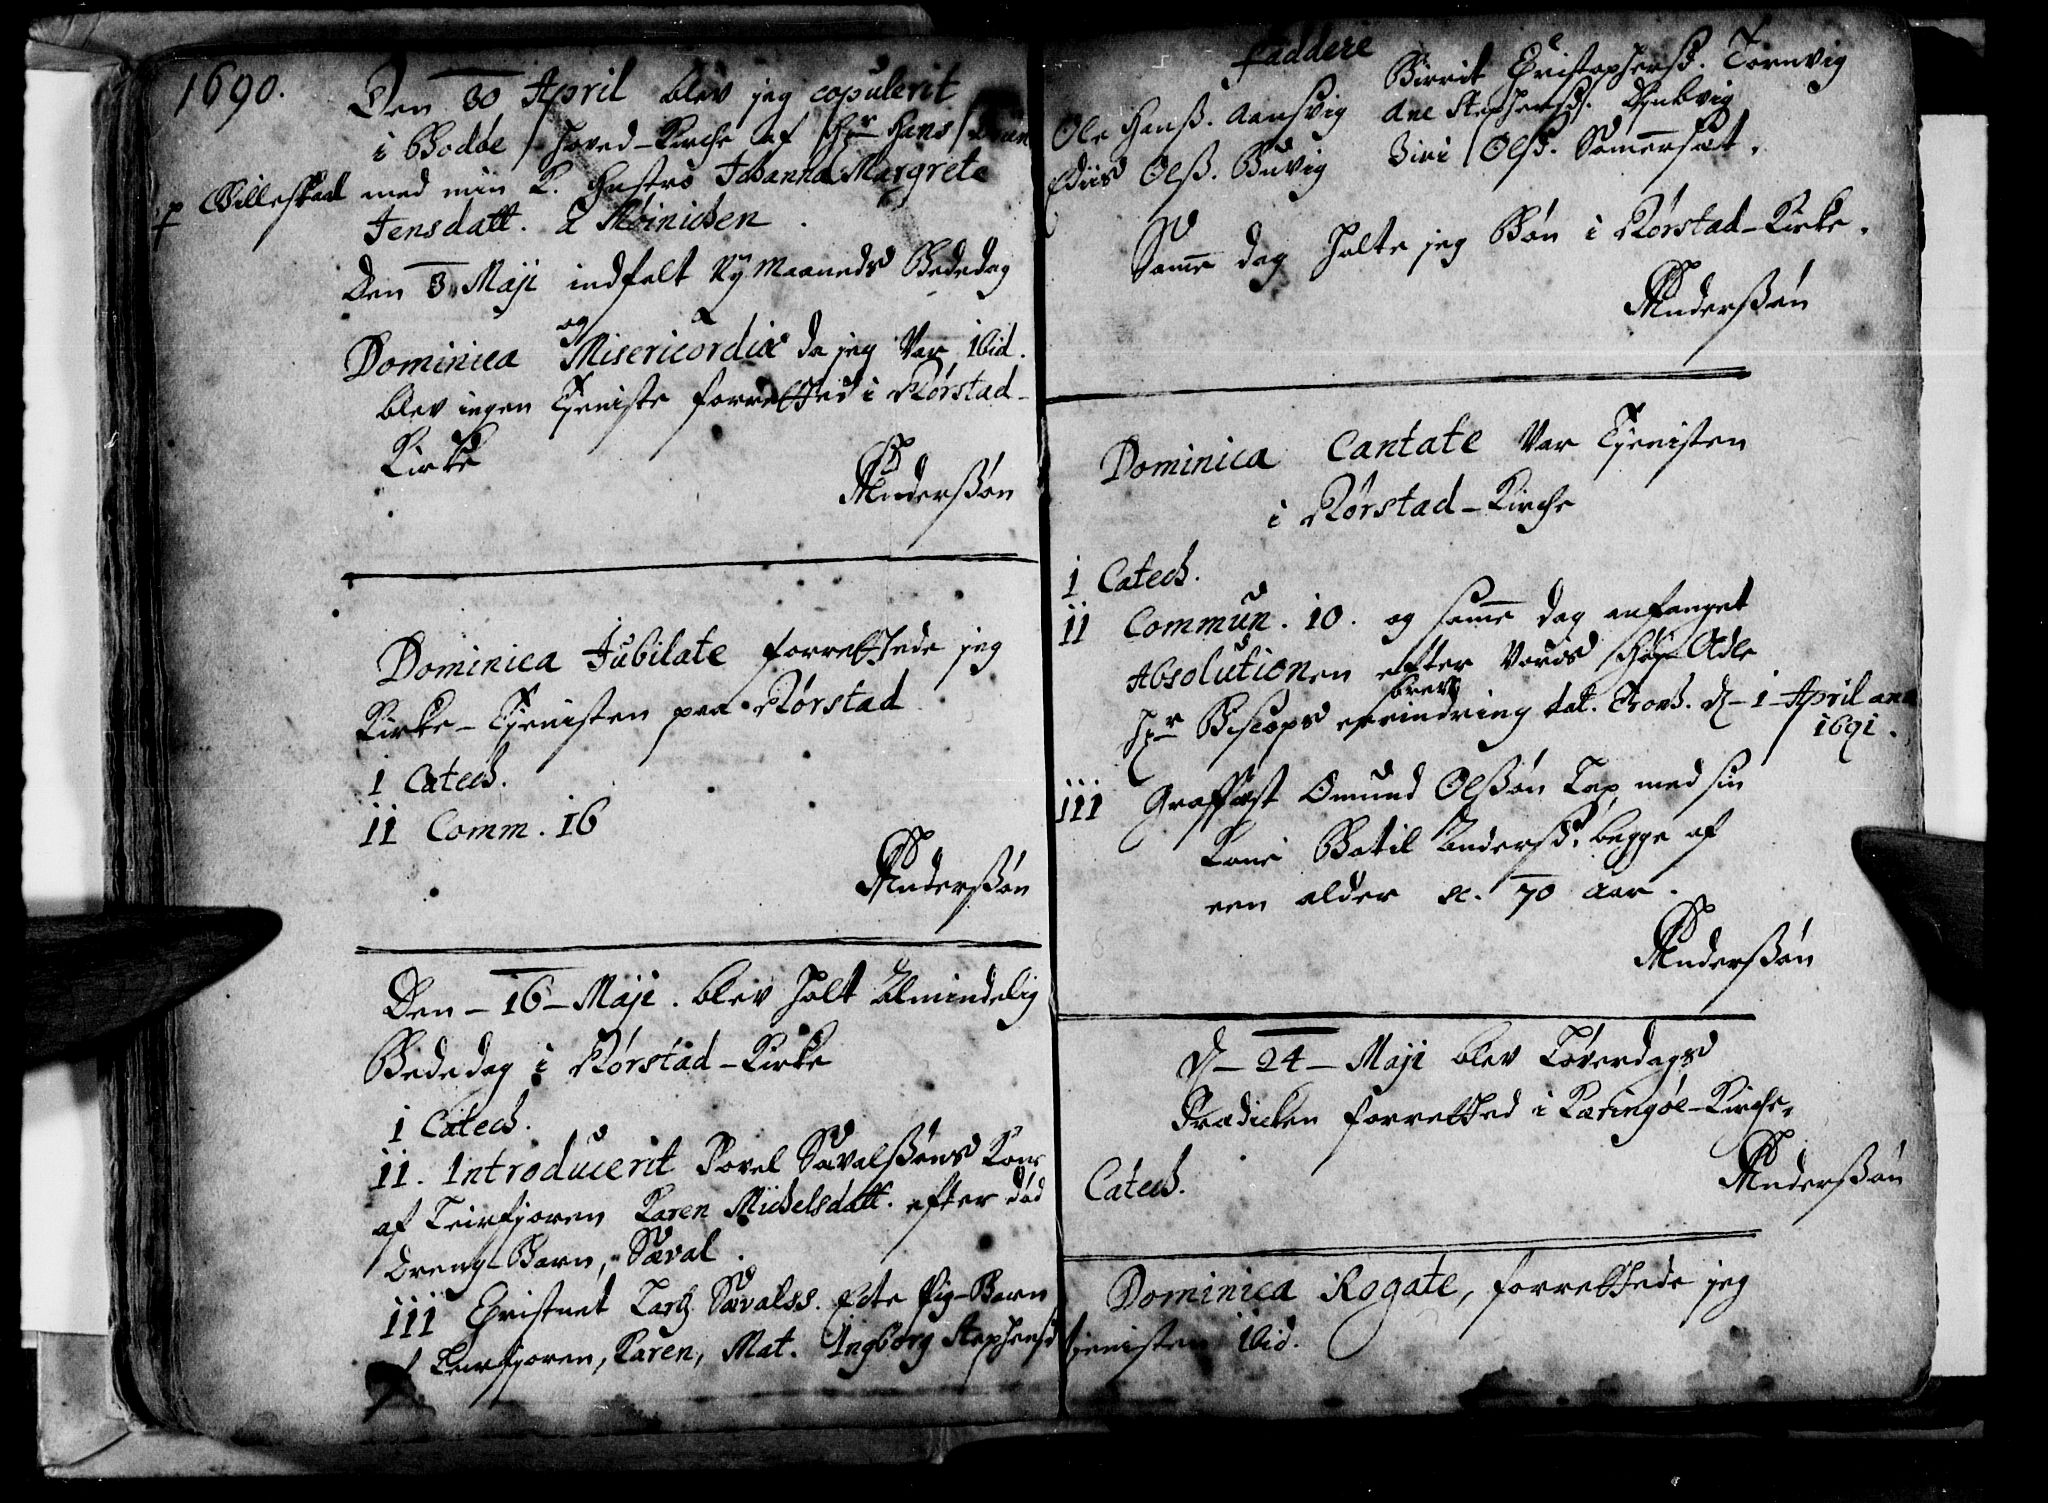 1690.
Den 30 April blev jeg copulerit
i Bodøe Hoved-Kirche af Hr Hans
p Gilleskaal med min K. Hustro Johanna Margrete
Jensdatt. a Møinichen.
Den 3. Maji indfalt Ny Maaneds Bededag
og
Dominica Misericordiæ da jeg var ibid.
blev ingen Tjeniste forretted i Rørstad-
Kirke
Anderssøn
Dominica Jubilate forrettede jeg
Kirke-Tjenisten paa Rørstad
i Catech.
ii Comm. 16
Anderssøn
Den - 16 - Maji. blev Holt Almindelig
Bededag i Rørstad-Kirke
i Catech.
ii. Introducerit Povel Sævalssøns Kone
af Leirfjoren Karen Michelsdatt. efter død
Dreng-Barn, Sæval.
iii Christnet Lars Sævalss. Ecte Pig-Barn
af Leirfjoren, Karen, Mat. Ingborg Stephensd
Faddere
Ole Hanss. Aansvig
Birrit Christophersd. Tornvig
Ane Stephensd.
Olss. Buvig
Siri Olsd. Somersæt.
Same dag holte jeg Bøn i Rørstad-Kirke.
Anderssøn
Dominica Cantate var Tjenisten
i Rørstad-Kirche
i Catech.
ii Commun. 10. og same dag anfanget
Absolutionen efter vores Høy Ædle
Hr Biscops erindring brev dat. Tronh. d - 1 - April ano
1691.
iii Graffæst Omund Olssøn Lap med sin
Kone Botil Andersd. begge af
een alder sc. 70 aar.
Anderssøn
D - 24 - Maji blev Løverdags
Prædicken forretted i Kæringøe-Kirche.
Catech.
Anderssøn
Dominica Rogate, forrettede jeg
tjenisten ibid.